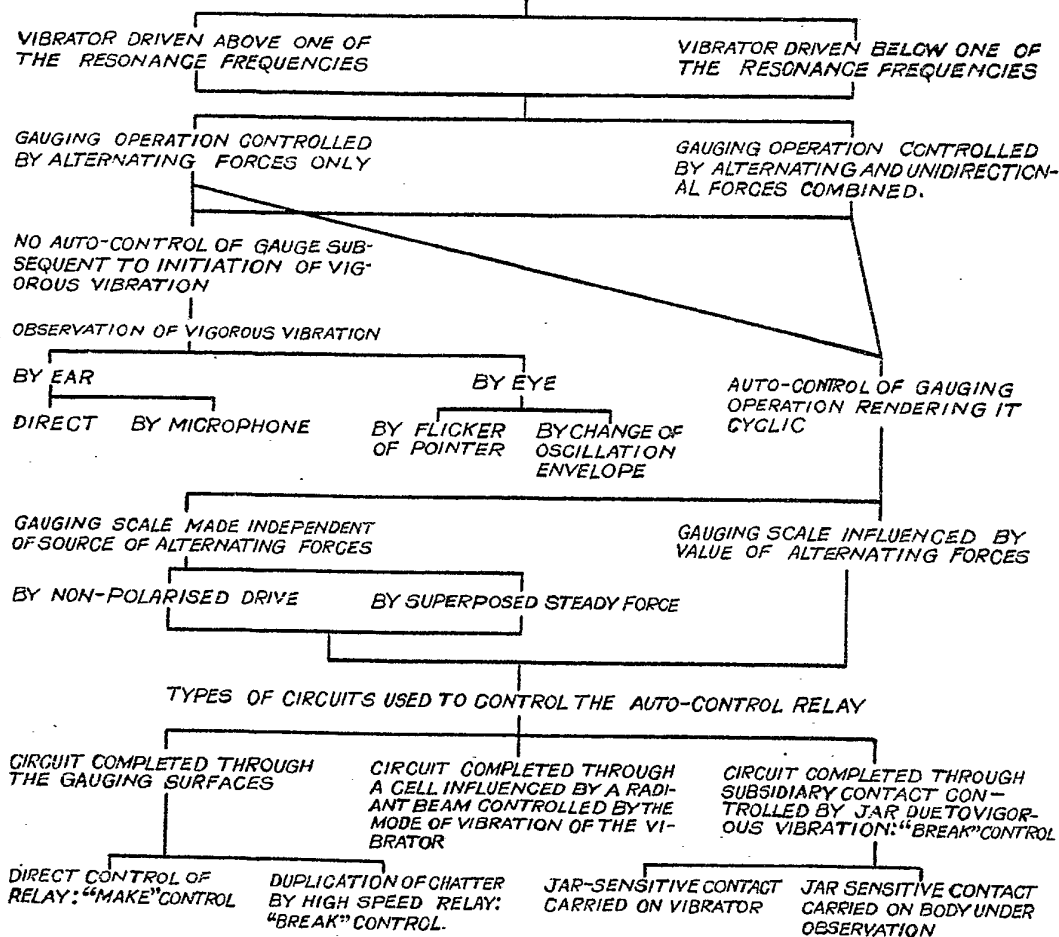 VIBRATOR DRIVEN ABOVE ONE OF
THE RESONANCE FREQUENCIES
VIBRATOR DRIVEN BELOW ONE OF
THE RESONANCE FREQUENCIES
GAUGING OPERATION CONTROLLED
BY ALTERNATING FORCES ONLY
GAUGING OPERATION CONTROLLED
BY ALTERNATING AND UNIDIRECTION-
AL FORCES COMBINED.
NO AUTO-CONTROL OF GAUGE SUB-
SEQUENT TO INITIATION OF VIG-
OROUS VIBRATION
OBSERVATION OF VIGOROUS VIBRATION
BY EAR
BY EYE
DIRECT
BY MICROPHONE
BY FLICKER
OF POINTER
BY CHANGE OF
OSCILLATION
ENVELOPE
AUTO-CONTROL OF GAUGING
OPERATION RENDERING IT
CYCLIC
GAUGING SCALE MADE INDEPENDENT
OF SOURCE OF ALTERNATING FORCES
GAUGING SCALE INFLUENCED BY
VALUE OF ALTERNATING FORCES
BY NON-POLARISED DRIVE
BY SUPERPOSED STEADY FORCE
TYPES OF CIRCUITS USED TO CONTROL THE AUTO-CONTROL RELAY
CIRCUIT COMPLETED THROUGH
THE GAUGING SURFACES
CIRCUIT COMPLETED THROUGH
A CELL INFLUENCED BY A RADI-
ANT BEAM CONTROLLED BY THE
MODE OF VIBRATION OF THE VI-
BRATOR
CIRCUIT COMPLETED THROUGH
SUBSIDIARY CONTACT CON-
TROLLED BY JAR DUE TO VIGOR-
OUS VIBRATION: "BREAK" CONTROL
DIRECT CONTROL OF
RELAY: "MAKE" CONTROL
DUPLICATION OF CHATTER
BY HIGH SPEED RELAY:
"BREAK" CONTROL.
JAR-SENSITIVE CONTACT
CARRIED ON VIBRATOR
JAR SENSITIVE CONTACT
CARRIED ON BODY UNDER
OBSERVATION